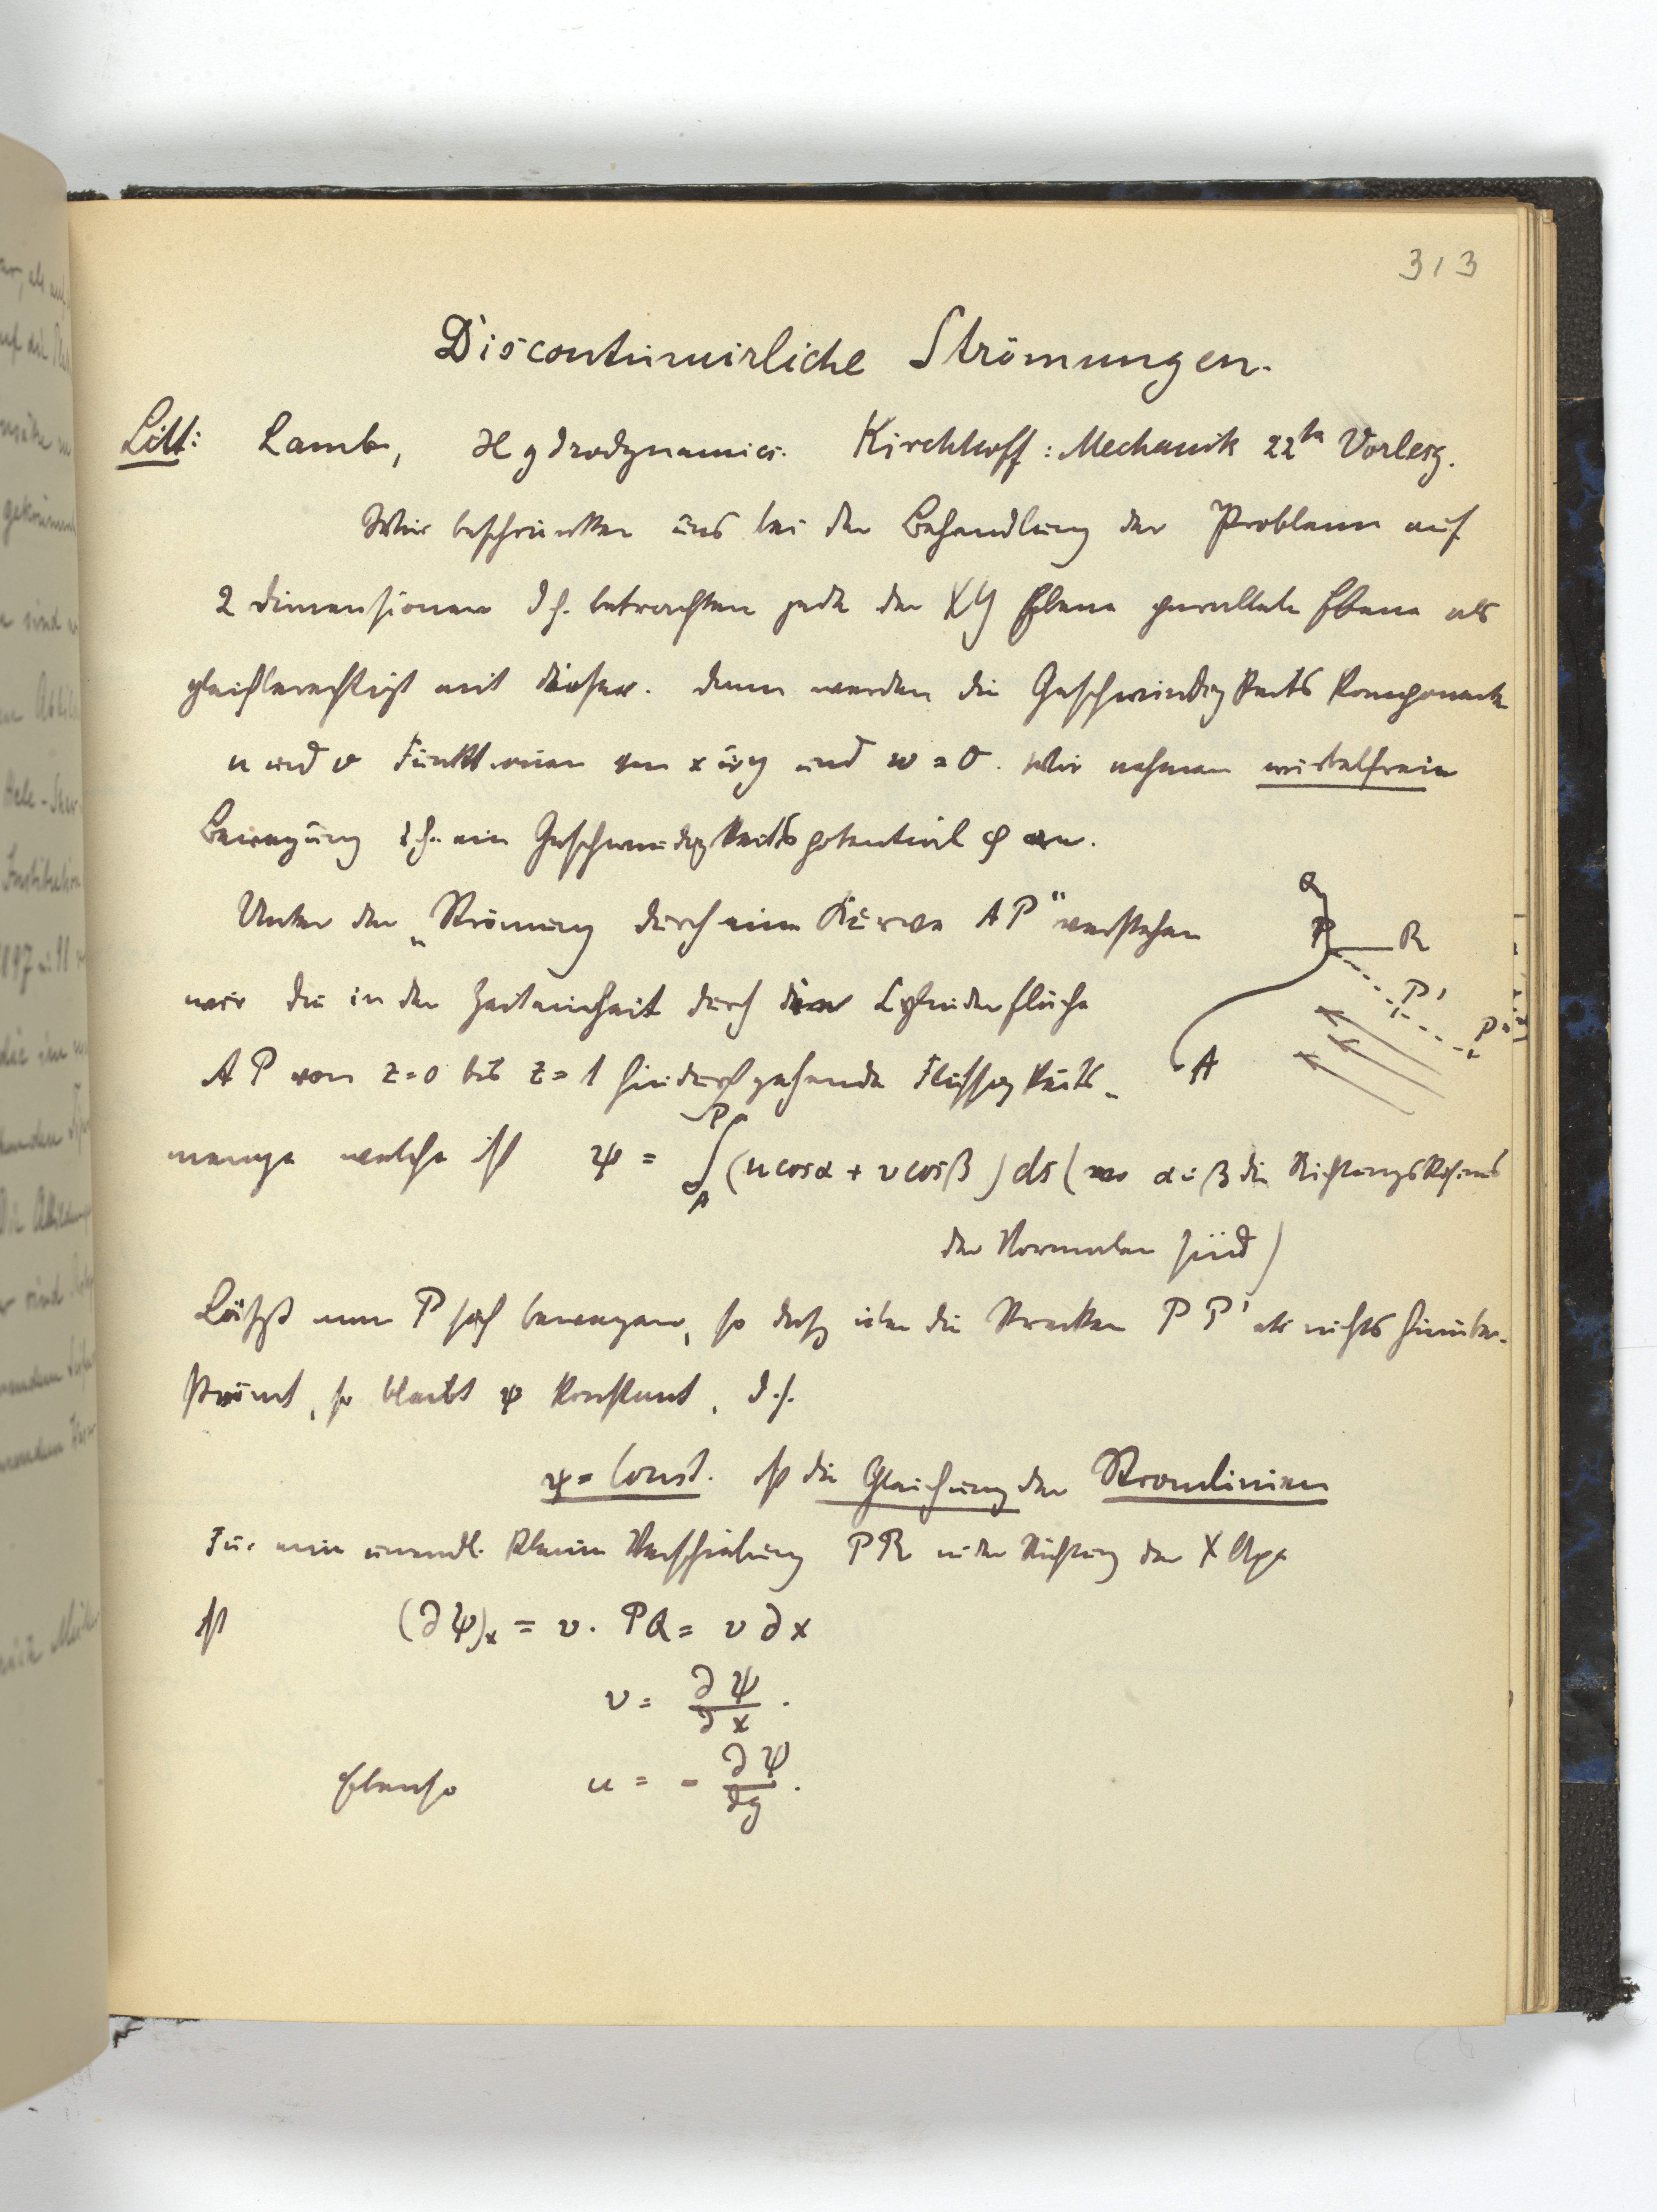 313
Discontinuirliche Strömungen.
Litt: Lamb, Hydrodynamics. Kirchhoff: Mechanik 22te Vorlesg.
Wir beschränken uns bei der Behandlung der Probleme auf
2 Dimensionen d.h. betrachten jede der XY Ebene parallele Ebene als
gleichberechtigt mit dieser. Dann werden die Geschwindigkeits Komponente
u und v Funktionen von x u. y und w = 0. Wir nehmen wirbelfreie
Bewegung d.h. ein Geschwindigkeitspotential φ an.
Unter der „Strömung durch eine Kurve AP" verstehen
wir die in der Zeiteinheit durch die Cylinderfläche
AP von z=0 bis z=1 hindurchgehende Flüssigkeits-
menge welche ist ψ = ∫_A^P (u cosα + v cosβ) ds (wo α u. β die Richtungskosinus
der Normalen sind)
Q
P
R
P'
P''
A
Läßt man P sich bewegen, so daß über die Strecken PP' etc nichts hinüber-
strömt, so bleibt ψ konstant, d.h.
ψ = Const. ist die Gleichung der Stromlinien
Für eine unendl. kleine Verschiebung PR in der Richtung der X Axe
ist (∂ψ)ₓ = v. PQ = v ∂x
v = ∂ψ/∂x.
Ebenso u = - ∂ψ/∂y.